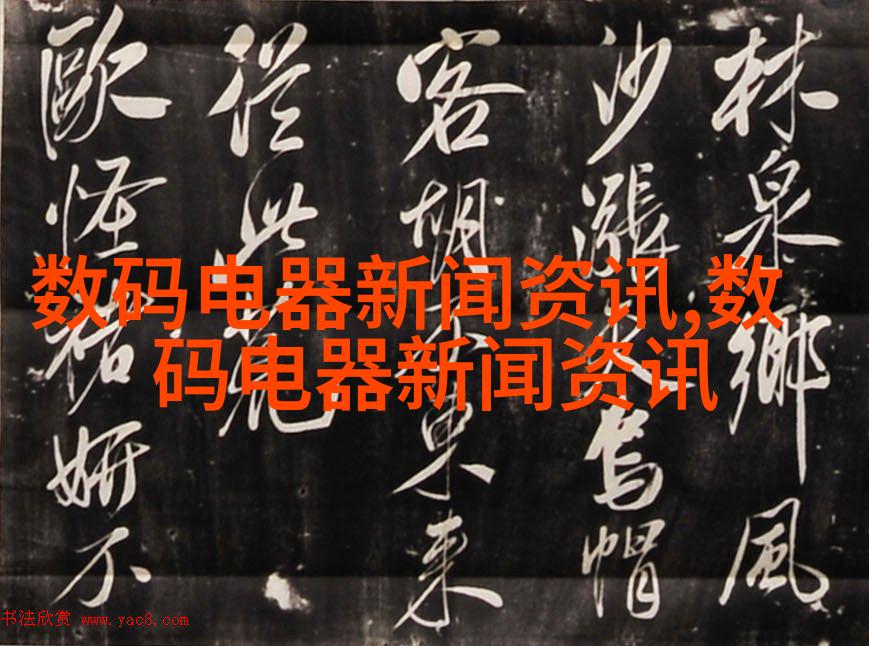 林泉鄉風
沙漲烏帽
客胡東來
從此
歐怪褚妍不
数码电器新闻资讯,数
码电器新闻资讯
书法欣赏 www.yac8.com